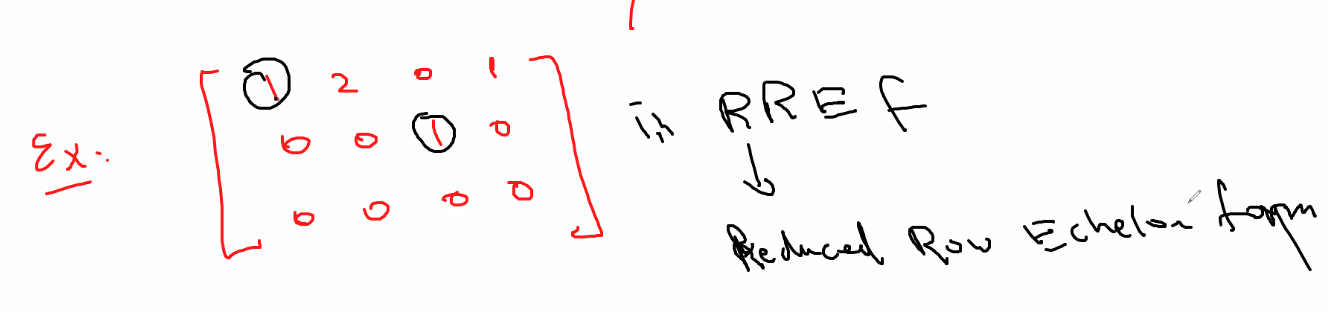 Ex:
1 2 0 1
0 0 1 0
0 0 0 0
in RREF
Reduced Row Echelon form